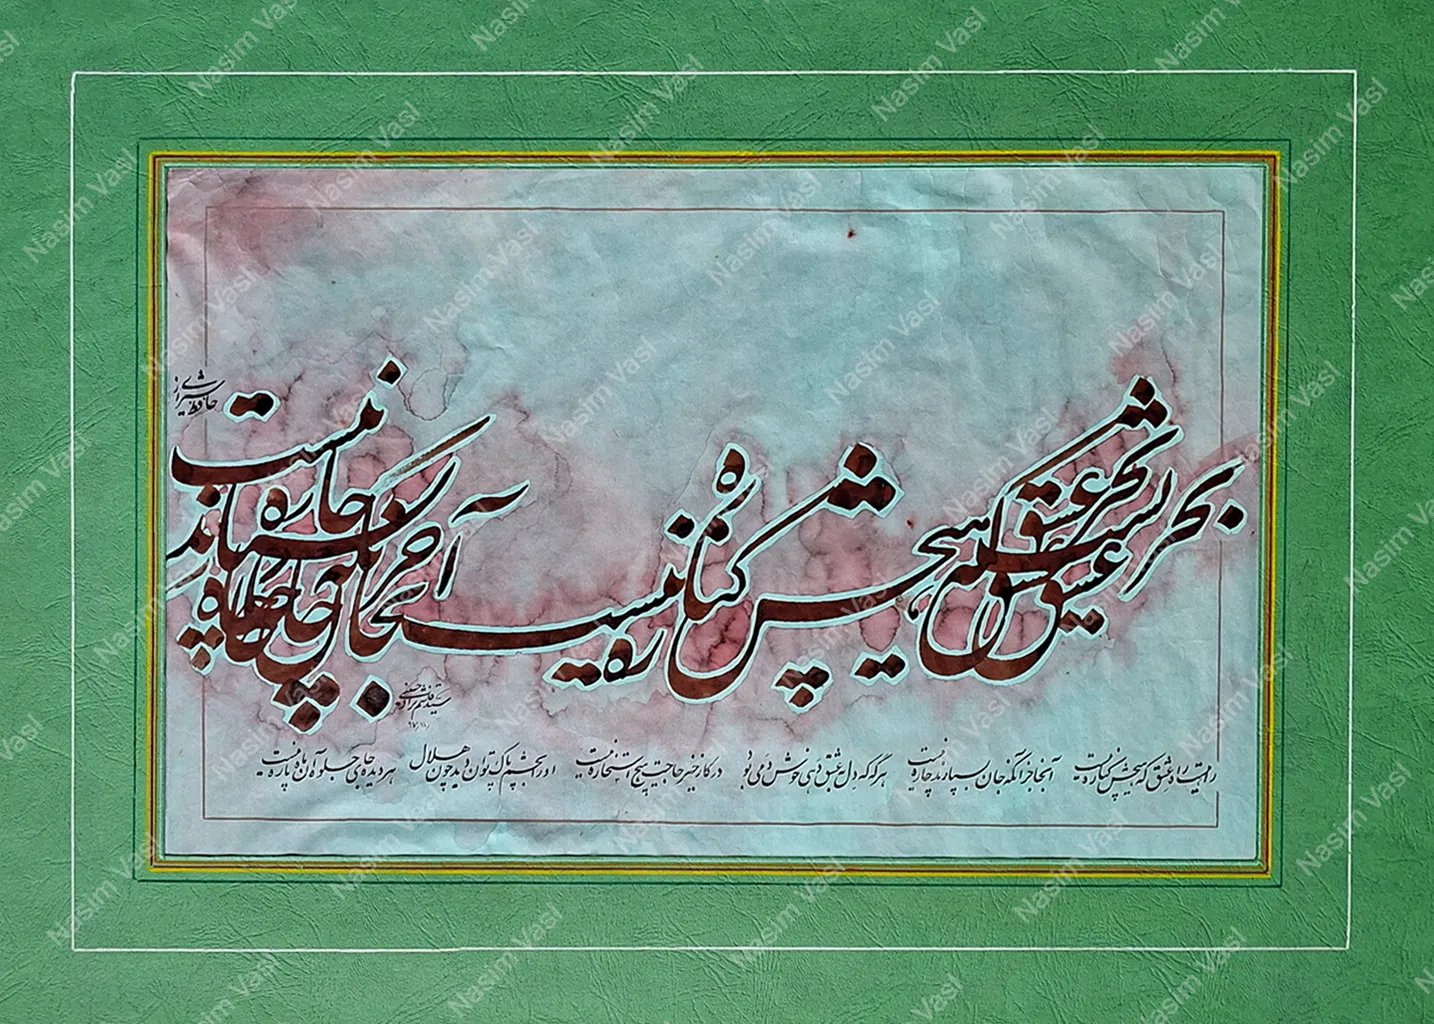 بحریست بحر عشق که هیچش کناره نیست
آنجا جز آنکه جان بسپارند چاره نیست
حافظ شیرازی
راهیست راه عشق که هیچش کناره نیست آنجا جز آنکه جان بسپارند چاره نیست هرگه که دل بعشق دهی خوش دمی بود در کار خیر حاجت هیچ استخاره نیست او را بچشم پاک توان دید چون هلال هر دیده جای جلوه آن ماه پاره نیست
Nasim Vasl